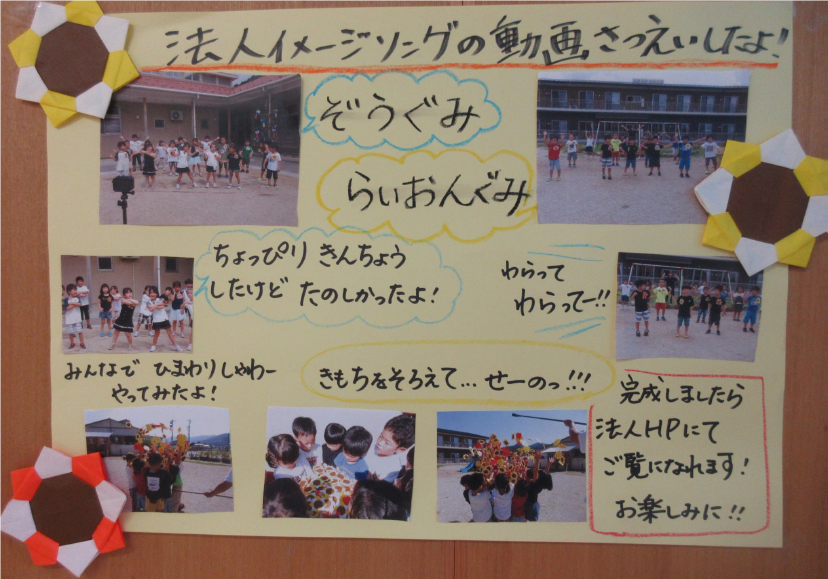 法人イメージソングの動画さつえいしたよ!
ぞうぐみ
らいおんぐみ
ちょっぴり きんちょう
したけど たのしかったよ!
わらって
わらってー!!
みんなで ひまわりしゃわー
やってみたよ!
きもちをそろえて...せーのっ!!!
完成しましたら
法人HPにて
ご覧になれます!
お楽しみに!!